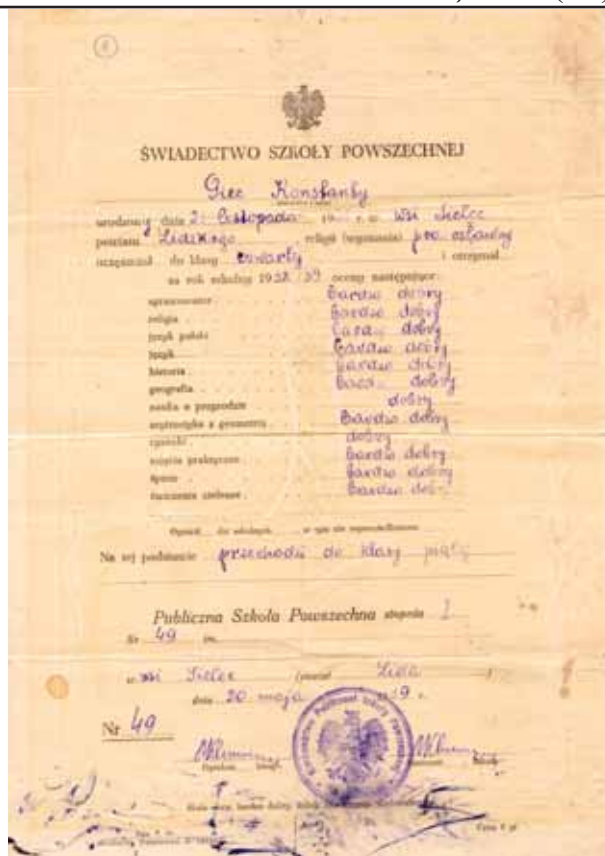 ŚWIADECTWO SZKOŁY POWSZECHNEJ
Giec Konstanty
urodzony dnia 2 listopada 19 r. w wsi Sielec
powiatu Lidzkiego religii (wyznania) prawosławny
uczęszczał do klasy czwartej i otrzymał
na rok szkolny 1938/39 oceny następujące:
sprawowanie bardzo dobry
religia bardzo dobry
język polski bardzo dobry
język bardzo dobry
historia bardzo dobry
geografia bardzo dobry
nauka o przyrodzie dobry
arytmetyka z geometrią bardzo dobry
rysunki dobry
zajęcia praktyczne bardzo dobry
śpiew bardzo dobry
ćwiczenia cielesne bardzo dobry
Opuścił dni szkolnych w tym nie usprawiedliwiono
Na tej podstawie przechodzi do klasy piątej
Publiczna Szkoła Powszechna stopnia I
Nr 49 im.
w wsi Sielec powiat Lida
dnia 20 maja 19 9 r.
Nr 49
Opiekun klasy
Cena 6 gr